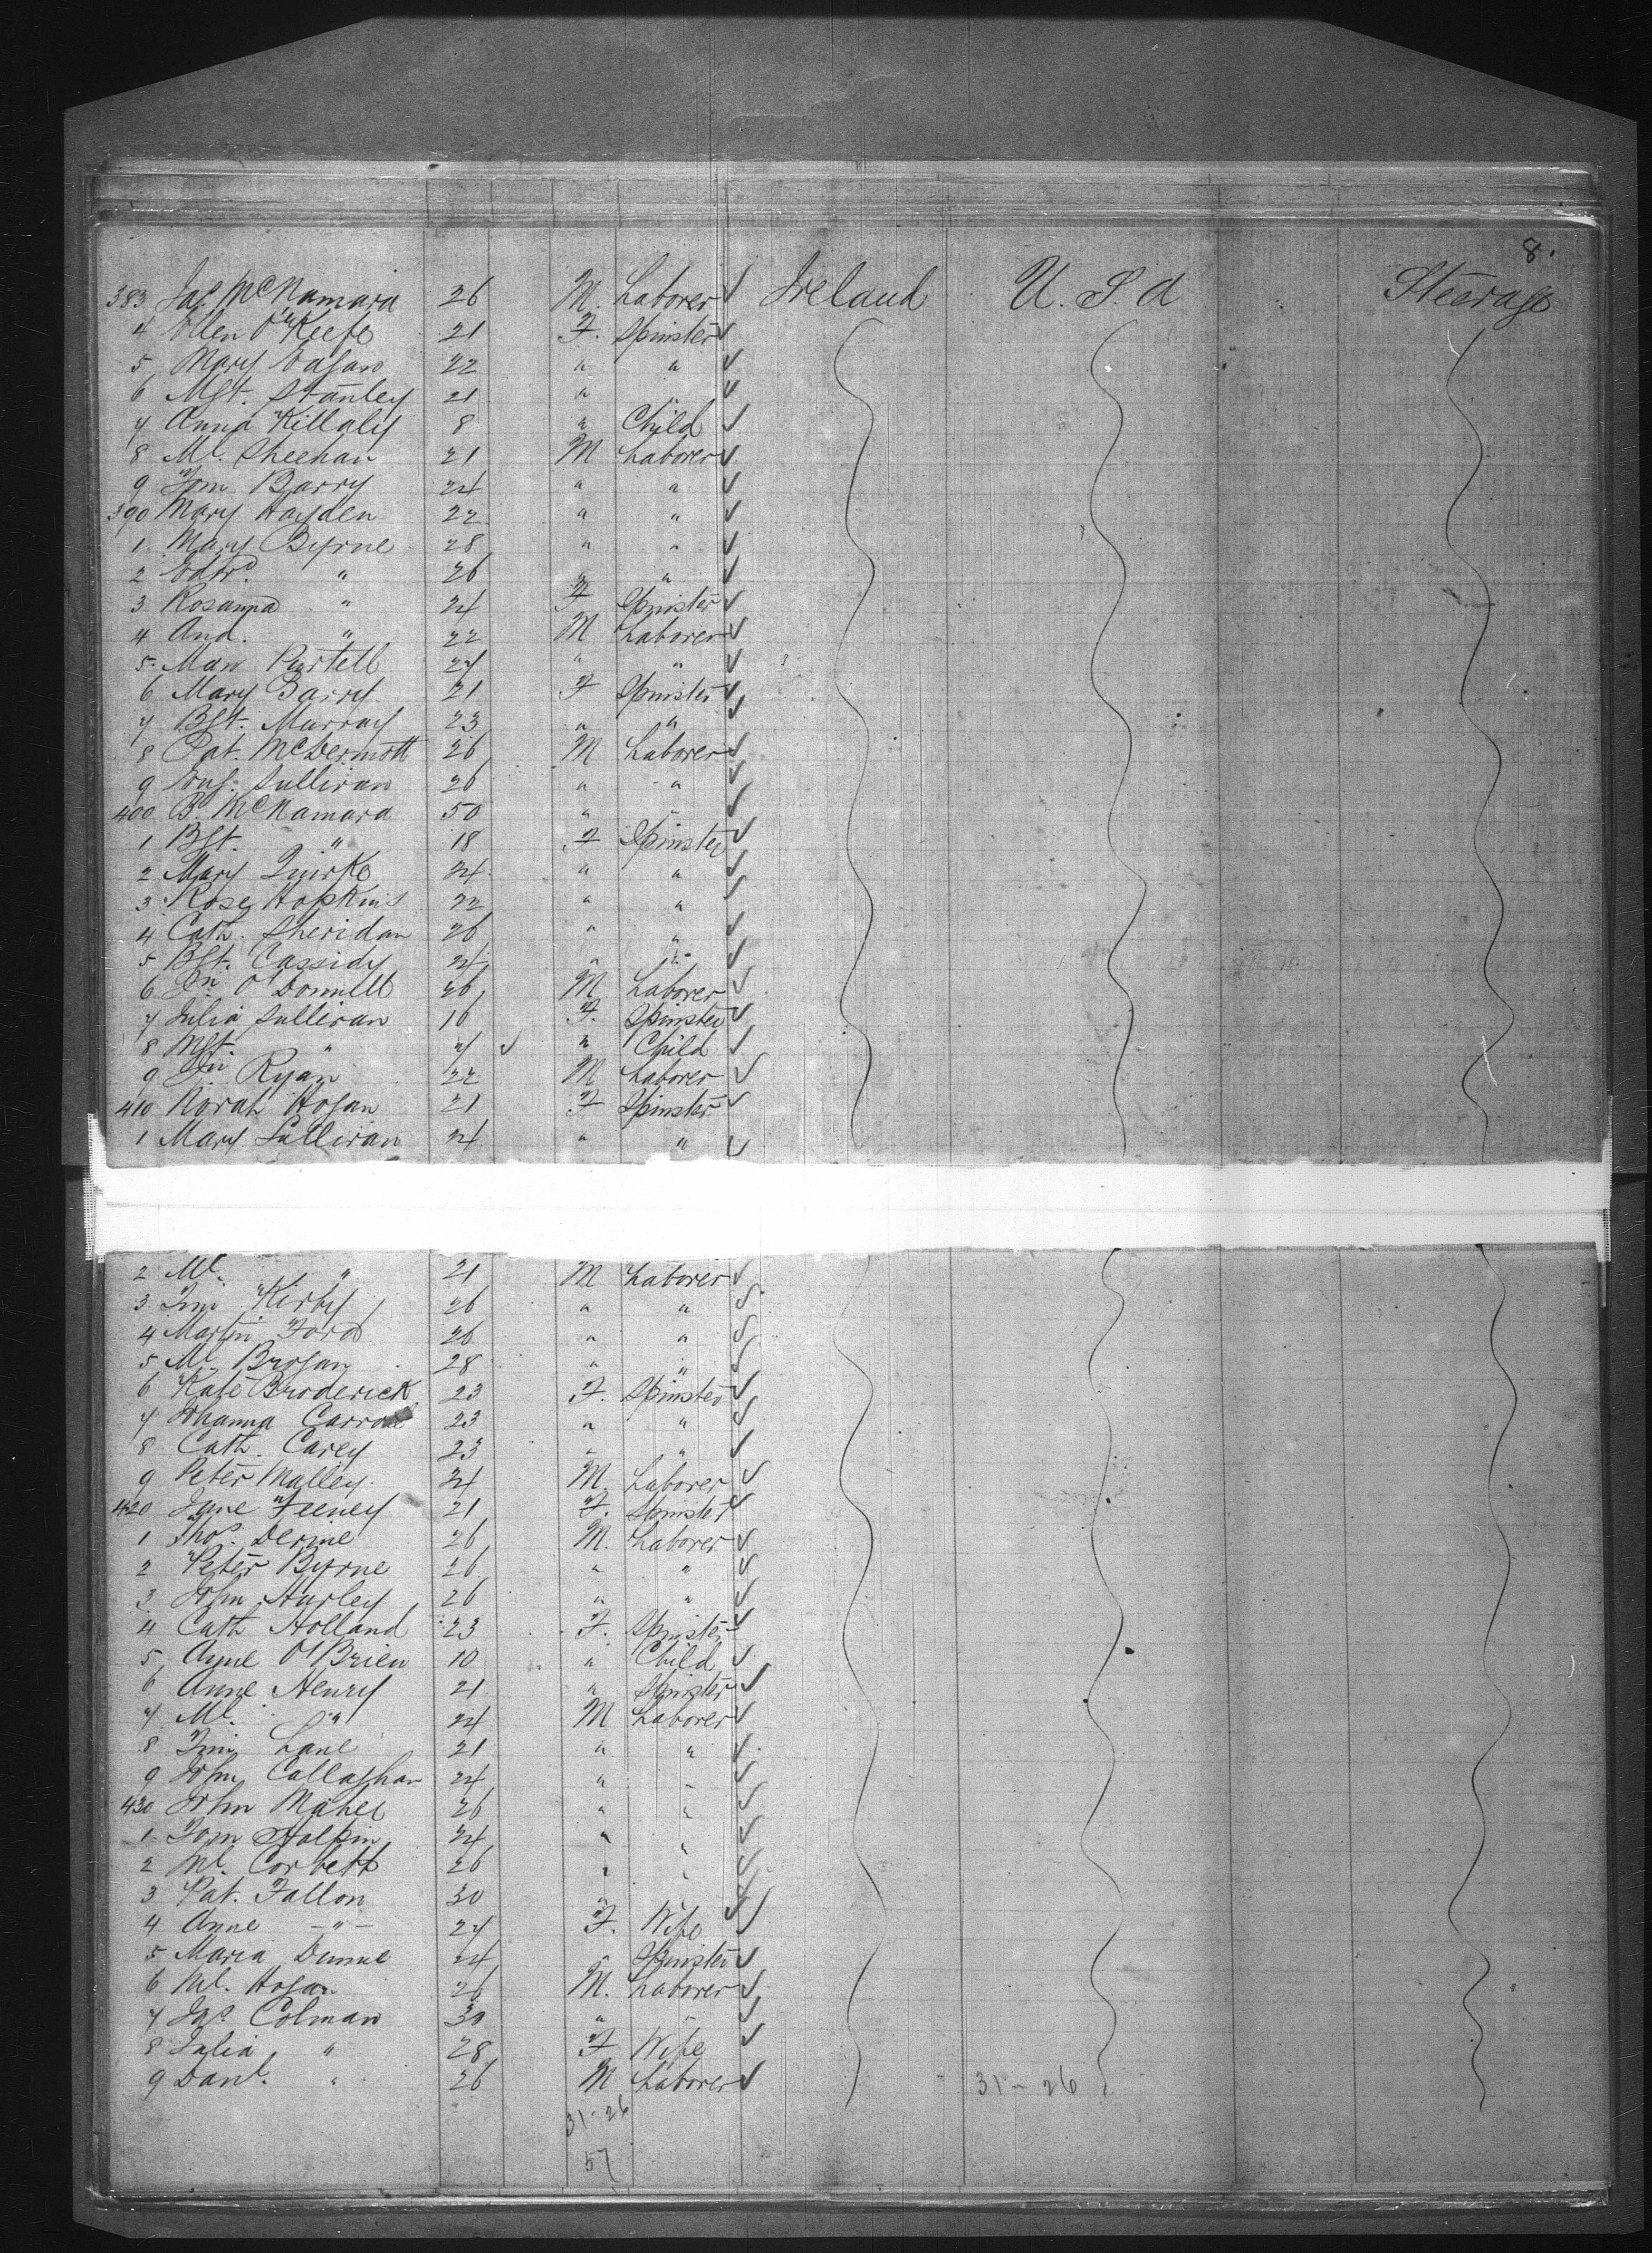 8.
383 Jas. McNamara 26 M. Laborer ✓ Ireland U.S.A Steerage
4 Ellen O'Keefe 21 F. Spinster ✓
5 Mary Eagan 22 " " ✓
6 Mgt. Stanley 21 " " ✓
7 Anna Killaly 8 " Child ✓
8 Ml. Sheehan 21 M Laborer ✓
9 Tom Barry 24 " " ✓
390 Mary Hayden 22 " " ✓
1 Mary Byrne 28 " " ✓
2 Edwd. " 26 " " ✓
3 Rosanna " 24 F Spinster ✓
4 And. " 22 M Laborer ✓
5 Maw Purtell 24 " " ✓
6 Mary Barry 21 F Spinster ✓
7 Bgt. Murray 23 " " ✓
8 Pat. McDermott 26 M Laborer ✓
9 Sullivan 26 " " ✓
400 B. McNamara 50 " " ✓
1 Bgt. " 18 F Spinster ✓
2 Mary Quirke 24 " " ✓
3 Rose Hopkins 22 " " ✓
4 Cath. Sheridan 26 " " ✓
5 Bgt. Cassidy 24 " " ✓
6 Jn O'Donnell 26 M Laborer ✓
7 Julia Sullivan 16 F. Spinster ✓
8 Mgt. " 7 ✓ " Child ✓
9 Jn Ryan 22 M Laborer ✓
410 Norah Hogan 21 F Spinster ✓
1 Mary Sullivan 24 " " ✓
2 Ml. " 21 M Laborer ✓
3 Tim Kirby 26 " " ✓
4 Martin Ford 26 " " ✓
5 Ml. Brogan 28 " " ✓
6 Kate Broderick 23 F. Spinster ✓
7 Johanna Carroll 23 " " ✓
8 Cath. Carey 23 " " ✓
9 Peter Malley 24 M. Laborer ✓
420 Jane Feeney 21 F. Spinster ✓
1 Thos. Devine 26 M. Laborer ✓
2 Peter Byrne 26 " " ✓
3 John Hurley 26 " " ✓
4 Cath Holland 23 F. Spinster ✓
5 Anne O'Brien 10 " Child ✓
6 Anne Henry 21 " Spinster ✓
7 Ml. " 24 M Laborer ✓
8 Tim Lane 21 " " ✓
9 John Callaghan 24 " " ✓
430 John Maher 26 " " ✓
1 Tom Halpin 24 " " ✓
2 Ml. Corbett 26 " " ✓
3 Pat. Fallon 30 ✓
4 Anne " 24 F. Wife ✓
5 Maria Dunne 24 " Spinster ✓
6 Ml. Hogan 26 M. Laborer ✓
7 Jas. Colman 30 " " ✓
8 Julia " 28 F Wife ✓
9 Danl. " 26 M Laborer ✓ 31-26
31-26
57